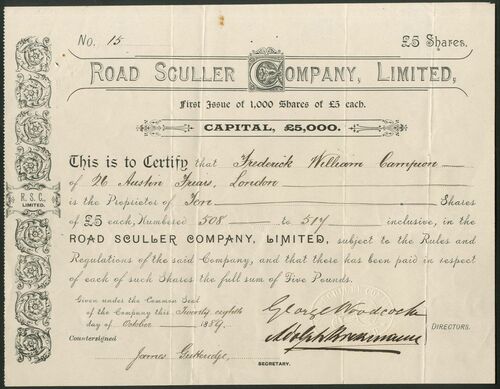 No. 15 £5 Shares.
ROAD SCULLER COMPANY, LIMITED,
First Issue of 1,000 Shares of £5 each.
CAPITAL, £5,000.
This is to Certify that Frederick William Campion
of 26 Austin Friars, London
is the Proprietor of Ten Shares
of £5 each, Numbered 508 to 517 inclusive, in the
ROAD SCULLER COMPANY, LIMITED, subject to the Rules and
Regulations of the said Company, and that there has been paid in respect
of each of such Shares the full sum of Five Pounds.
R. S. C.,
LIMITED.
Given under the Common Seal
of the Company this Twenty eighth
day of October 1889.
George Woodcock
Adolph
DIRECTORS.
Countersigned
James Gutteridge,
SECRETARY.